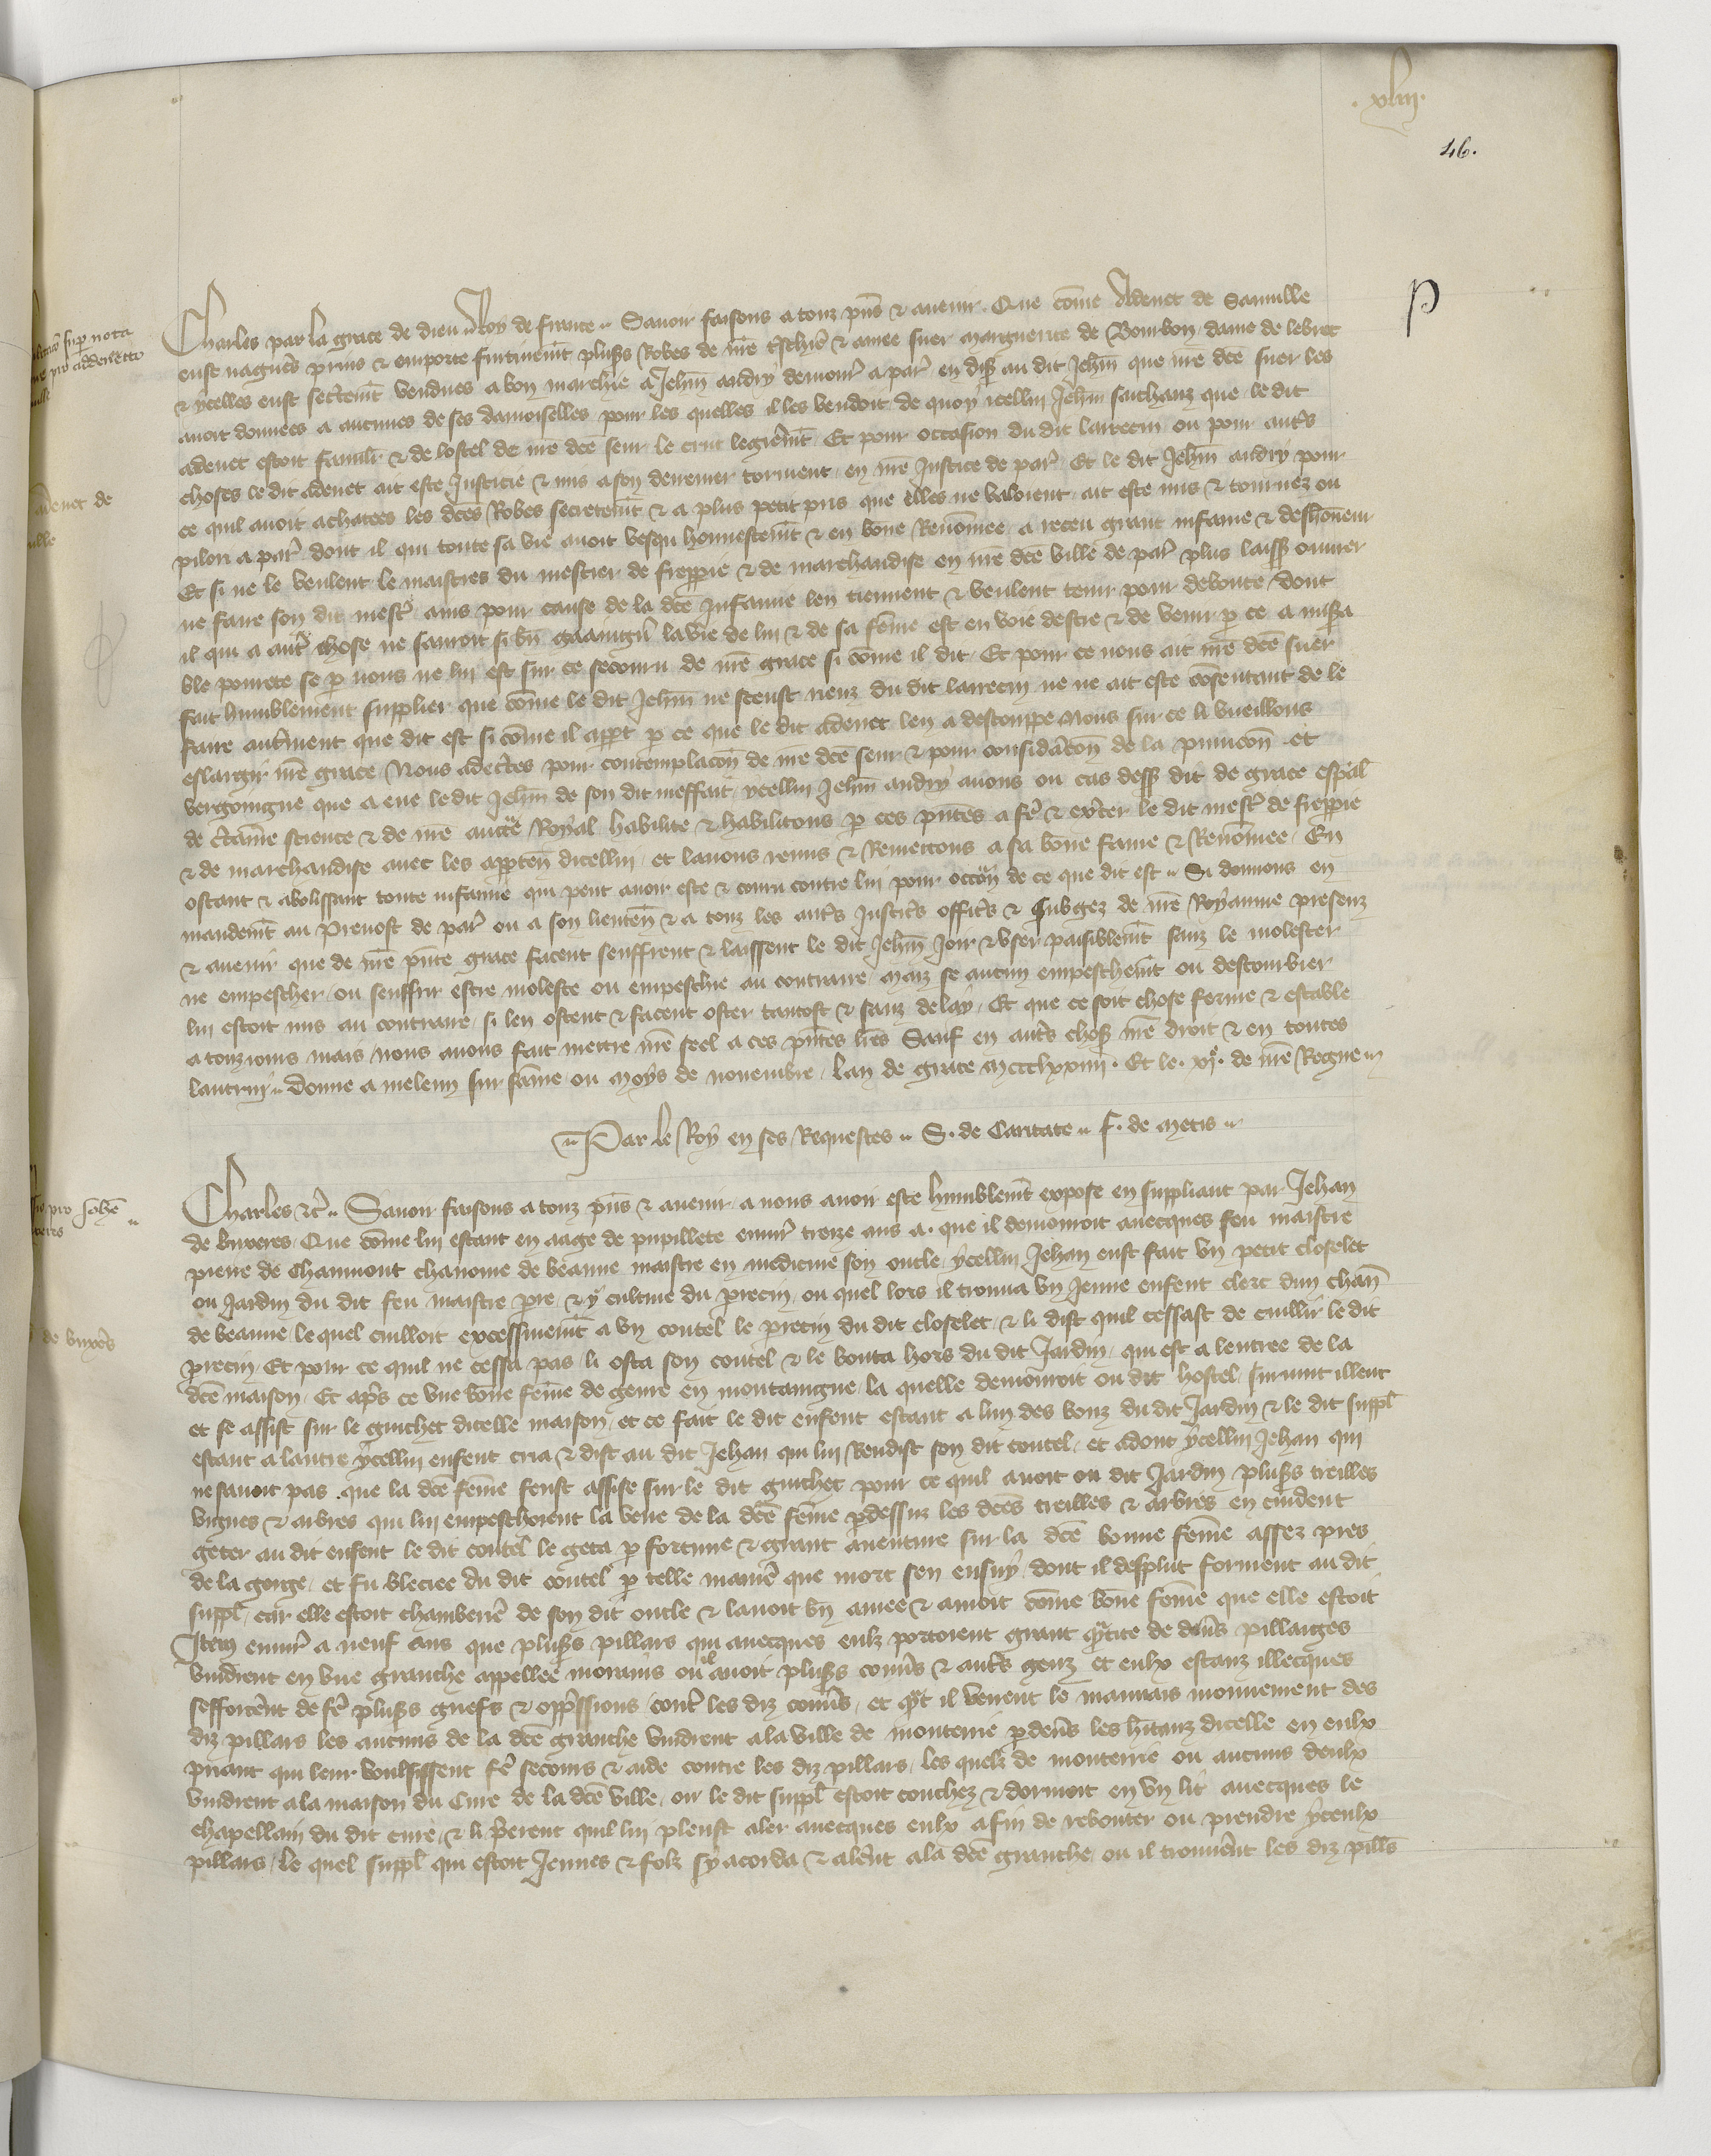 .xlvj.
46.
Charles par la grace de dieu Roy de france Sauoir faisons a touz pn̄s & auenir Que cōme Adenet de Sanuille
eust nagueres prins & emporte furtiuemt plusrs Robes de nr̄e treschiere & amee suer marguerite de Bourbon dame de lebret
& ycelles eust secretemt vendues a bon marchie a Jehan andry demour a par en disant au dit Jehan que nr̄e dcē suer les
auoit donnees a aucunes de ses damoiselles pour les quelles il les vendoit de quoy icellui Jehan saichanz que le dit
adenet estoit famil & de lostel de nr̄e dcē seur le crut legierement Et pour occasion du dit larrecin ou pour autres
choses le dit adenet ait este Justicie & mis a son derrenier torment en nr̄e Justice de par Et le dit Jehan andry pour
ce quil auoit achatees les dcēs Robes secretemt & a plus petit pris que elles ne valoient ait este mis & tournez ou
pilori a par dont il qui toute sa vie auoit vesqu honnestemt & en bone Renōmee a receu grant infame & deshōneur
Et si ne le veulent le maistres du mestier de freperie & de marchandise en nr̄e dcē ville de par plus laissier ouurer
ne faire son dit mestier ains pour cause de la dcē Infamie len tiennent & veulent tenir pour deboute dont
il qui a autre chose ne sauroit si bn̄ gaaignier la vie de lui & de sa fēme est en voie destre & de venir p ce a misera
ble pourete se p nous ne lui est sur ce secouru de nr̄e grace si cōme il dit Et pour ce nous ait nr̄e dcē suer
fait humblement supplier que cōme le dit Jehan ne sceust riens du dit larrecin ne ne ait este cōsentant de le
faire autrement que dit est si cōme il appt p ce que le dit adenet len a descoupe Nous sur ce li vueillons
eslargir nr̄e grace Nous adecertes pour contemplacōn de nr̄e dcē seur & pour considāciōn de la punicōn et
vergoingne que a eue le dit Jehan de son dit meffait ycellui Jehan andry auons ou cas dessus dit de grace espāl
de certaine science & de nr̄e aucte Royal habilite & habilitons p ces pn̄tes a fe & excer le dit mestier de freperie
& de marchandise auec les appten dicellui et lauons remis & Remettons a sa bōne fame & Renōmee En
ostant & abolissant toute infamie qui peut auoir este & couru contre lui pour occon de ce que dit est Si donnons en
mandemt au Preuost de par ou a son lieuten & a touz les autres Justiciers officiers & Subgez de nr̄e Royaume presenz
& auenir que de nr̄e pn̄te grace facent seuffrent & laissent le dit Jehan Joir & vser paisiblemt sanz le molester
ne empescher ou seuffrir estre moleste ou empeschie au contraire maiz se aucun empeschemt ou destourbier
lui estoit mis au contraire si len ostent & facent oster tantost & sanz delay Et que ce soit chose ferme & estable
a touziours mais nous auons fait mettre nr̄e seel a ces pn̄tes lr̄es Sauf en autres choses nr̄e droit & en toutes
lautruy donne a meleun sur sāine ou moys de nouembre lan de grace mccclxxiiij. Et le .xj.e de nr̄e Regne
Par le Roy en ses Requestes S. de Caritate f. de metis
Charles &c Sauoir faisons a touz pn̄s & auenir a nous auoir este humblemt expose en suppliant par Jehan
de buxeres Que cōme lui estant en aage de pupillete enuir treize ans a que il demouroit auecques feu maistre
pierre de Chaumont chanoine de beaune maistre en medicine son oncle ycellui Jehan eust fait vn petit closelet
ou Jardin du dit feu maistre pre & y cultiue du precin ou quel lors il trouua vn Jeune enfent clerc dun chan
de beaune le quel cuilloit excessiuemt a vn coutel le precin du dit closelet & li dist quil cessast de cuillir le dit
precin Et pour ce quil ne cessa pas li osta son coutel & le bouta hors du dit Jardin qui est a lentree de la
dcē maison Et aps ce vne bōne fēme de genre en montaingne la quelle demouroit ou dit hostel suruint illeuc
et se assist sur le guichet dicelle maison et ce fait le dit enfent estant a lun des bouz du dit Jardin & le dit suppl
estant a lautre ycellui enfent cria & dist au dit Jehan qui lui Rendist son dit coutel et adont ycellui Jehan qui
ne sauoit pas que la dcē fēme feust assise sur le dit guichet pour ce quil auoit ou dit Jardin plusrs treilles
vignes & arbres qui lui empeschoient la veue de la dcē fēme pdessuz les dcēs treilles & arbres en cuident
geter au dit enfent le dit coutel le geta p fortune & grant auenture sur la dcē bonne fēme assez pres
de la gorge et fu bleciee du dit coutel p telle maniere que mort sen ensuy dont il desplut forment au dit
suppl car elle estoit chamberiere de son dit oncle & lauoit bn̄ amee & amoit cōme bōne fēme que elle estoit
Item enuir a neuf ans que plusrs pillars qui auecques eulz portoient grant qtite de diuers pillaiges
vindrent en vne granche appellee morains ou il auoit plusrs conuers & autres genz et eulx estanz illecques
sefforcerent de fe plusrs griefs & oppressions contre les diz conuers et qt il virent le mauuais mouuement des
diz pillars les aucuns de la dcē granche vindrent a la ville de monterrie p deuers les hītanz dicelle en eulx
priant qui leur voulsissent fe secours & aide contre les diz pillars les quelz de monterrie ou aucuns deulx
vindrent a la maison du Cure de la dcē ville ou le dit suppl estoit couchez & dormoit en vn lit auecques le
chapellain du dit cure & li prierent quil lui pleust aler auecques eulx afin de rebouter ou prendre yceulx
pillars le quel suppl qui estoit Jeunes & folz sy acorda & alerent a la dcē granche ou il trouuerent les diz pills